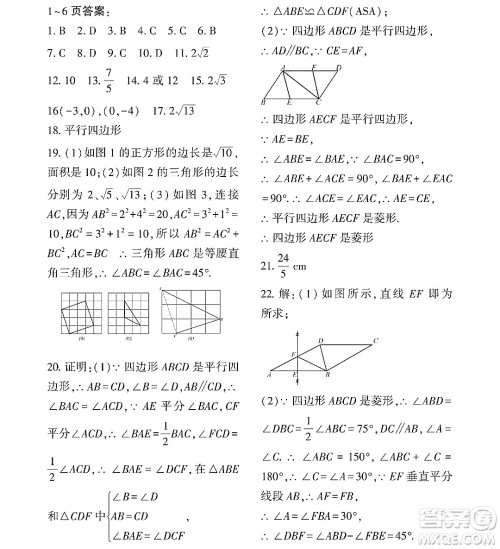 1~6页答案:
1. B  2. D  3. B  4. D  5. B  6. B
7. C  8. D  9. B  10. D  11. 2√2
12. 10  13. 7/5  14. 4 或 12  15. 2√2
16(-3,0),(0,-4)  17. 2√13
18. 平行四边形
19. (1)如图 1 的正方形的边长是√10,
面积是 10;(2)如图 2 的三角形的边长
分别为 2、√5、√13;(3)如图 3,连接
AC,因为 AB²=2²+4²=20,AC²=3²+1²=
10,BC²=3²+1²=10,所以 AB²=AC²+
BC²,AC=BC ∴三角形 ABC 是等腰直
角三角形,∴∠ABC=∠BAC=45°.
20. 证明:(1)∵四边形 ABCD 是平行四
边形,∴AB=CD,∠B=∠D,AB∥CD,∴
∠BAC=∠ACD,∵AE 平分∠BAC,CF
平分∠ACD,∴∠BAE=1/2∠BAC,∠DCF=
1/2∠ACD,∴∠BAE=∠DCF,在△ABE
和△CDF 中{∠B=∠D
AB=CD
∠BAE=∠DCF
∴△ABE≌△CDF(ASA);
(2)∵四边形 ABCD 是平行四边形,
∴AD∥BC,∵CE=AF,
A F D
B E C
∴四边形 AECF 是平行四边形,
∵AE=BE,
∴∠ABE=∠BAE,∵∠BAC=90°,
∴∠ABE+∠ACE=90°,∠BAE+∠EAC
=90°,∴∠ACE=∠EAC,∴AE=CE,
∴平行四边形 AECF 是菱形.
∴四边形 AECF 是菱形
21. 24/5 cm
22. 解:(1)如图所示,直线 EF 即为
所求;
D C
F
A E B
(2)∵四边形 ABCD 是菱形,∴∠ABD=
∠DBC=1/2∠ABC=75°,DC∥AB,∠A=
∠C.∴∠ABC=150°,∠ABC+∠C=
180°,∴∠C=∠A=30°,∵EF 垂直平分
线段 AB,∴AF=FB,
∴∠A=∠FBA=30°,
∴∠DBF=∠ABD-∠FBE=45°.